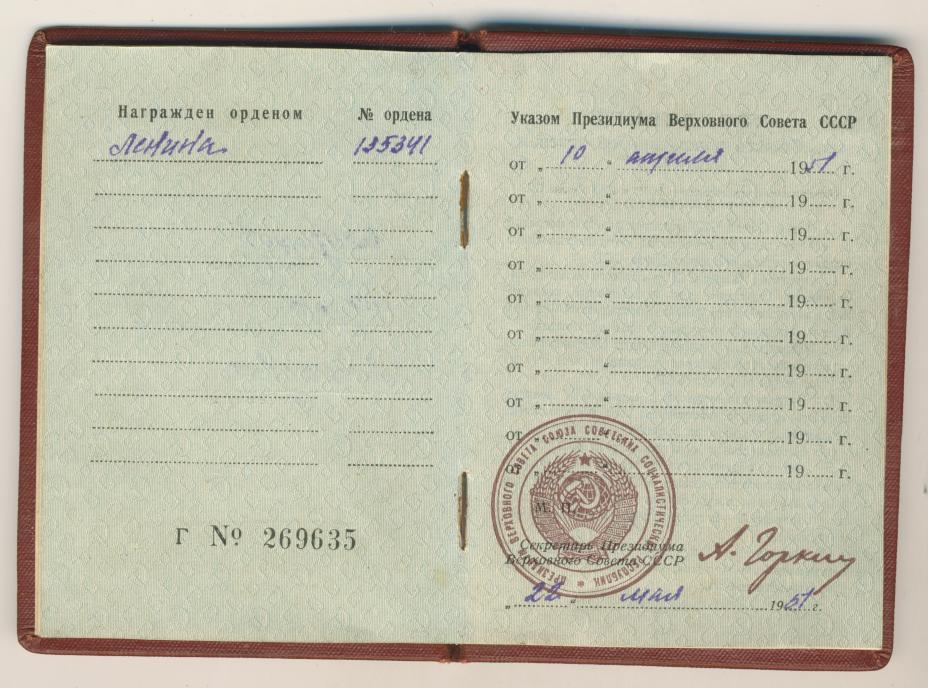 Награжден орденом № ордена
Ленина 125341
Г № 269635
Указом Президиума Верховного Совета СССР
от „ 10 “ апреля 1951 г.
от „ “ 19 г.
от „ “ 19 г.
от „ “ 19 г.
от „ “ 19 г.
от „ “ 19 г.
от „ “ 19 г.
от „ “ 19 г.
от „ “ 19 г.
от „ “ 19 г.
ПРЕЗИДИУМ ВЕРХОВНОГО СОВЕТА СОЮЗА СОВЕТСКИХ СОЦИАЛИСТИЧЕСКИХ РЕСПУБЛИК
М. П.
Секретарь Президиума
Верховного Совета СССР
А. Горкин
„ 22 “ мая 1951 г.